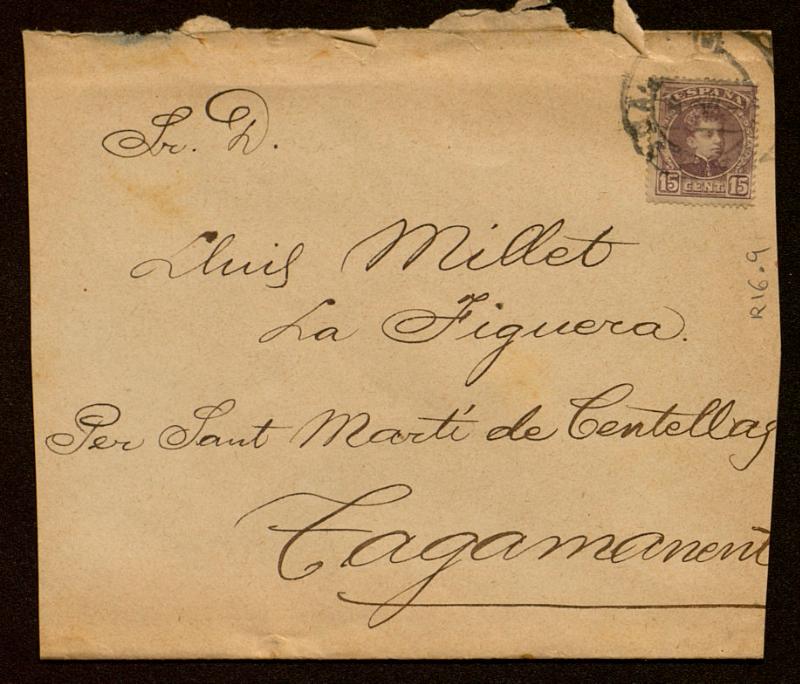 Sr. D.
Lluis Millet
La Figuera.
Per Sant Martí de Centellas
Tagamanent
ESPAÑA
15 CENT 15
R16.9